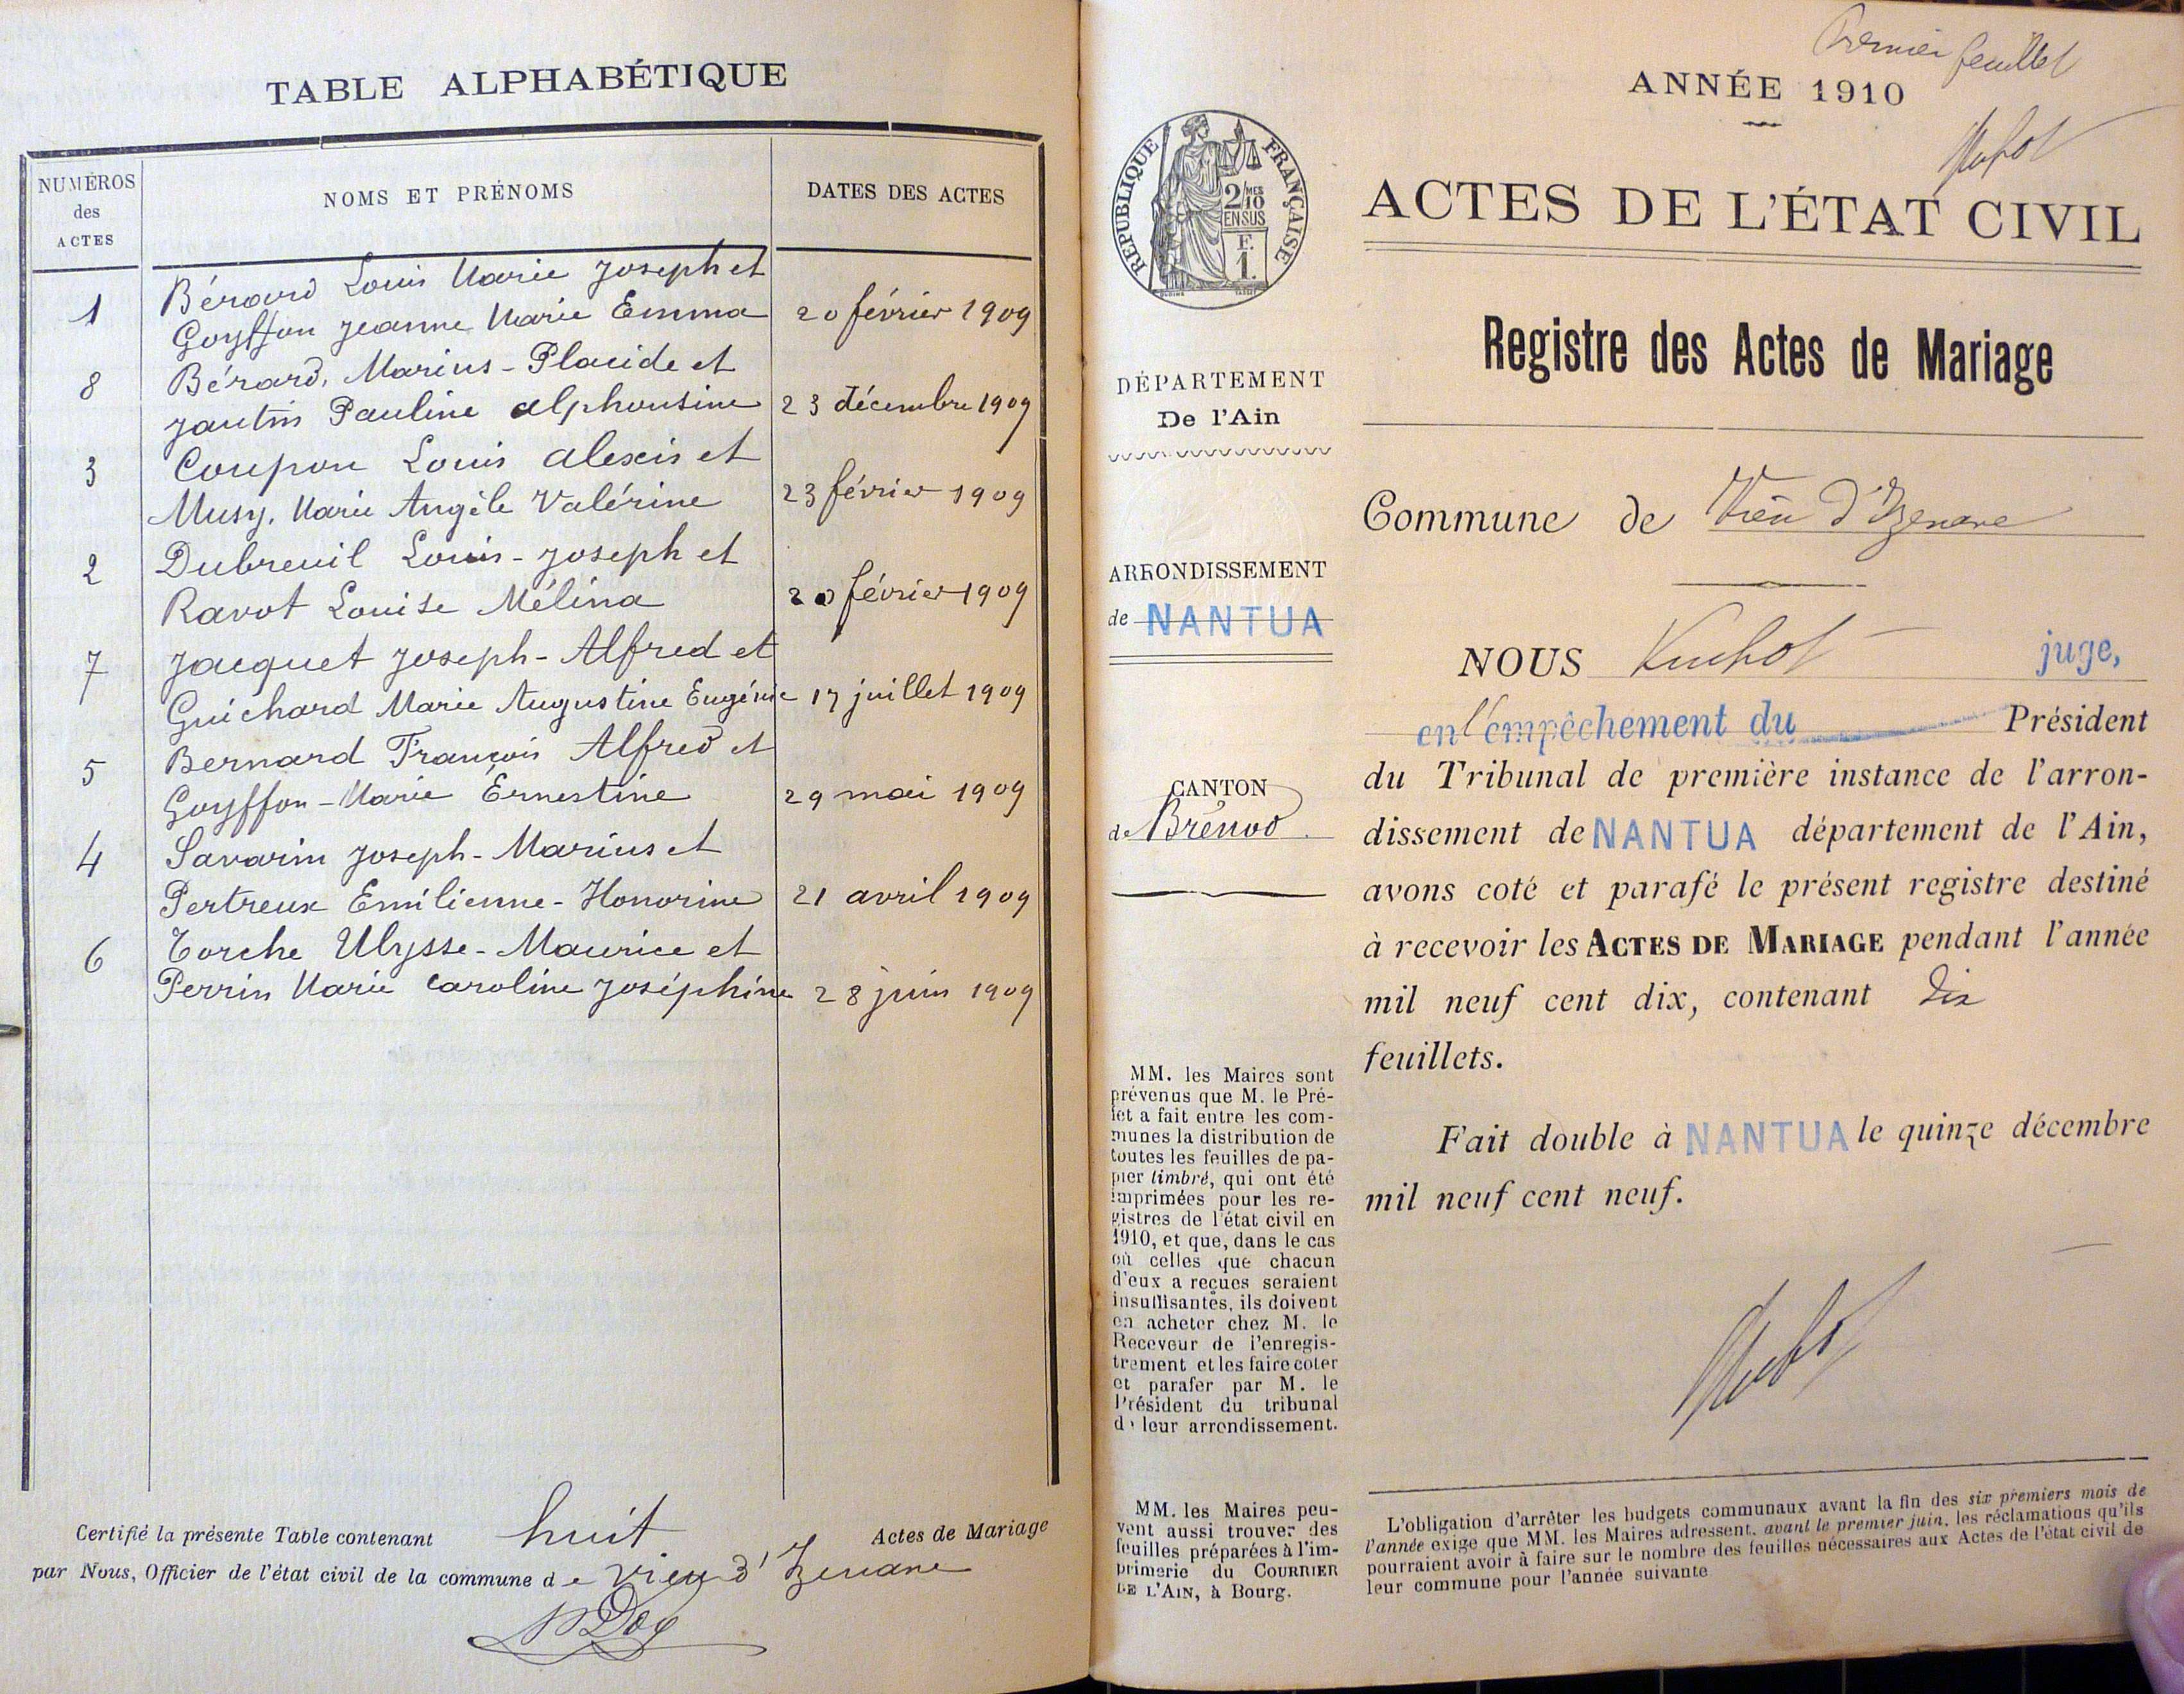 TABLE ALPHABÉTIQUE
NUMÉROS
des
ACTES
NOMS ET PRÉNOMS
DATES DES ACTES
1
Bérard Louis Marie Joseph et
Goyffon Jeanne Marie Emma
20 février 1909
8
Bérard, Marius-Placide et
Jantin Pauline Alphonsine
23 décembre 1909
3
Coupon Louis Alexis et
Musy, Marie Angèle Valérine
23 février 1909
2
Dubreuil Louis-Joseph et
Ravot Louise Mélina
20 février 1909
7
Jacquet Joseph-Alfred et
Guichard Marie Augustine Eugénie
17 juillet 1909
5
Bernard François Alfred et
Goyffon-Marie Ernestine
29 mai 1909
4
Savarin Joseph-Marius et
Pertreux Emilienne-Honorine
21 avril 1909
6
Torche Ulysse-Maurice et
Perrin Marie Caroline Joséphine
28 juin 1909
Certifié la présente Table contenant huit Actes de Mariage
par Nous, Officier de l'état civil de la commune de Vieu d'Izenave
Premier feuillet
ANNÉE 1910
RÉPUBLIQUE FRANÇAISE
2/10 MES
EN SUS
F.
1.
ACTES DE L'ÉTAT CIVIL
Registre des Actes de Mariage
DÉPARTEMENT
De l'Ain
ARRONDISSEMENT
de NANTUA
CANTON
de Brénod
MM. les Maires sont
prévenus que M. le Pré-
fet a fait entre les com-
munes la distribution de
toutes les feuilles de pa-
pier timbré, qui ont été
imprimées pour les re-
gistres de l'état civil en
1910, et que, dans le cas
où celles que chacun
d'eux a reçues seraient
insuffisantes, ils doivent
en acheter chez M. le
Receveur de l'enregis-
trement et les faire coter
et parafer par M. le
Président du tribunal
de leur arrondissement.
MM. les Maires peu-
vent aussi trouver des
feuilles préparées à l'im-
primerie du COURRIER
DE L'AIN, à Bourg.
Commune de Vieu d'Izenave
NOUS juge,
en l'empêchement du Président
du Tribunal de première instance de l'arron-
dissement de NANTUA département de l'Ain,
avons coté et parafé le présent registre destiné
à recevoir les ACTES DE MARIAGE pendant l'année
mil neuf cent dix, contenant dix
feuillets.
Fait double à NANTUA le quinze décembre
mil neuf cent neuf.
L'obligation d'arrêter les budgets communaux avant la fin des six premiers mois de
l'année exige que MM. les Maires adressent, avant le premier juin, les réclamations qu'ils
pourraient avoir à faire sur le nombre des feuilles nécessaires aux Actes de l'état civil de
leur commune pour l'année suivante